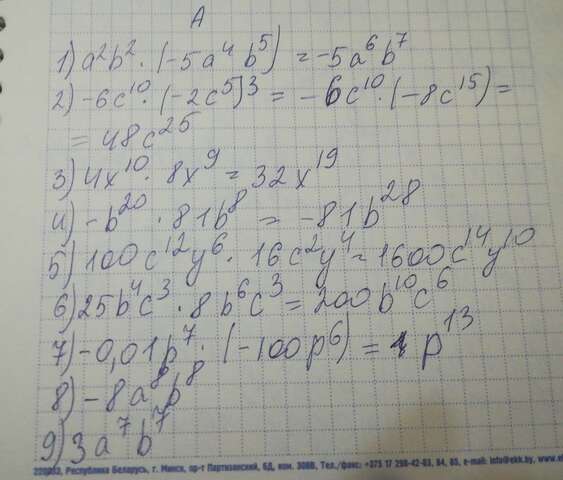 А
1) a²b² · (-5a⁴b⁵) = -5a⁶b⁷
2) -6c¹⁰ · (-2c⁵)³ = -6c¹⁰ · (-8c¹⁵) =
= 48c²⁵
3) 4x¹⁰ · 8x⁹ = 32x¹⁹
4) -b²⁰ · 81b⁸ = -81b²⁸
5) 100c¹²y⁶ · 16c²y⁴ = 1600c¹⁴y¹⁰
6) 25b⁴c³ · 8b⁶c³ = 200b¹⁰c⁶
7) -0,01p⁷ · (-100p⁶) = p¹³
8) -8a⁸b⁸
9) 3a⁷b⁷
220033, Республика Беларусь, г. Минск, пр-т Партизанский, 6Д, ком. 308В, Тел./факс: +375 17 298-42-83, 84, 85, e-mail: info@ekk.by, www.